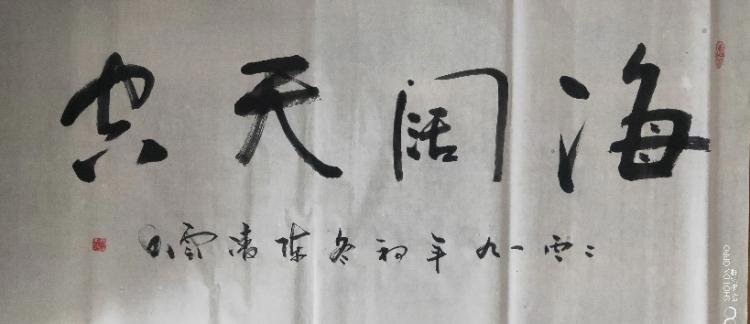 海阔天空
二零一九年初冬陈